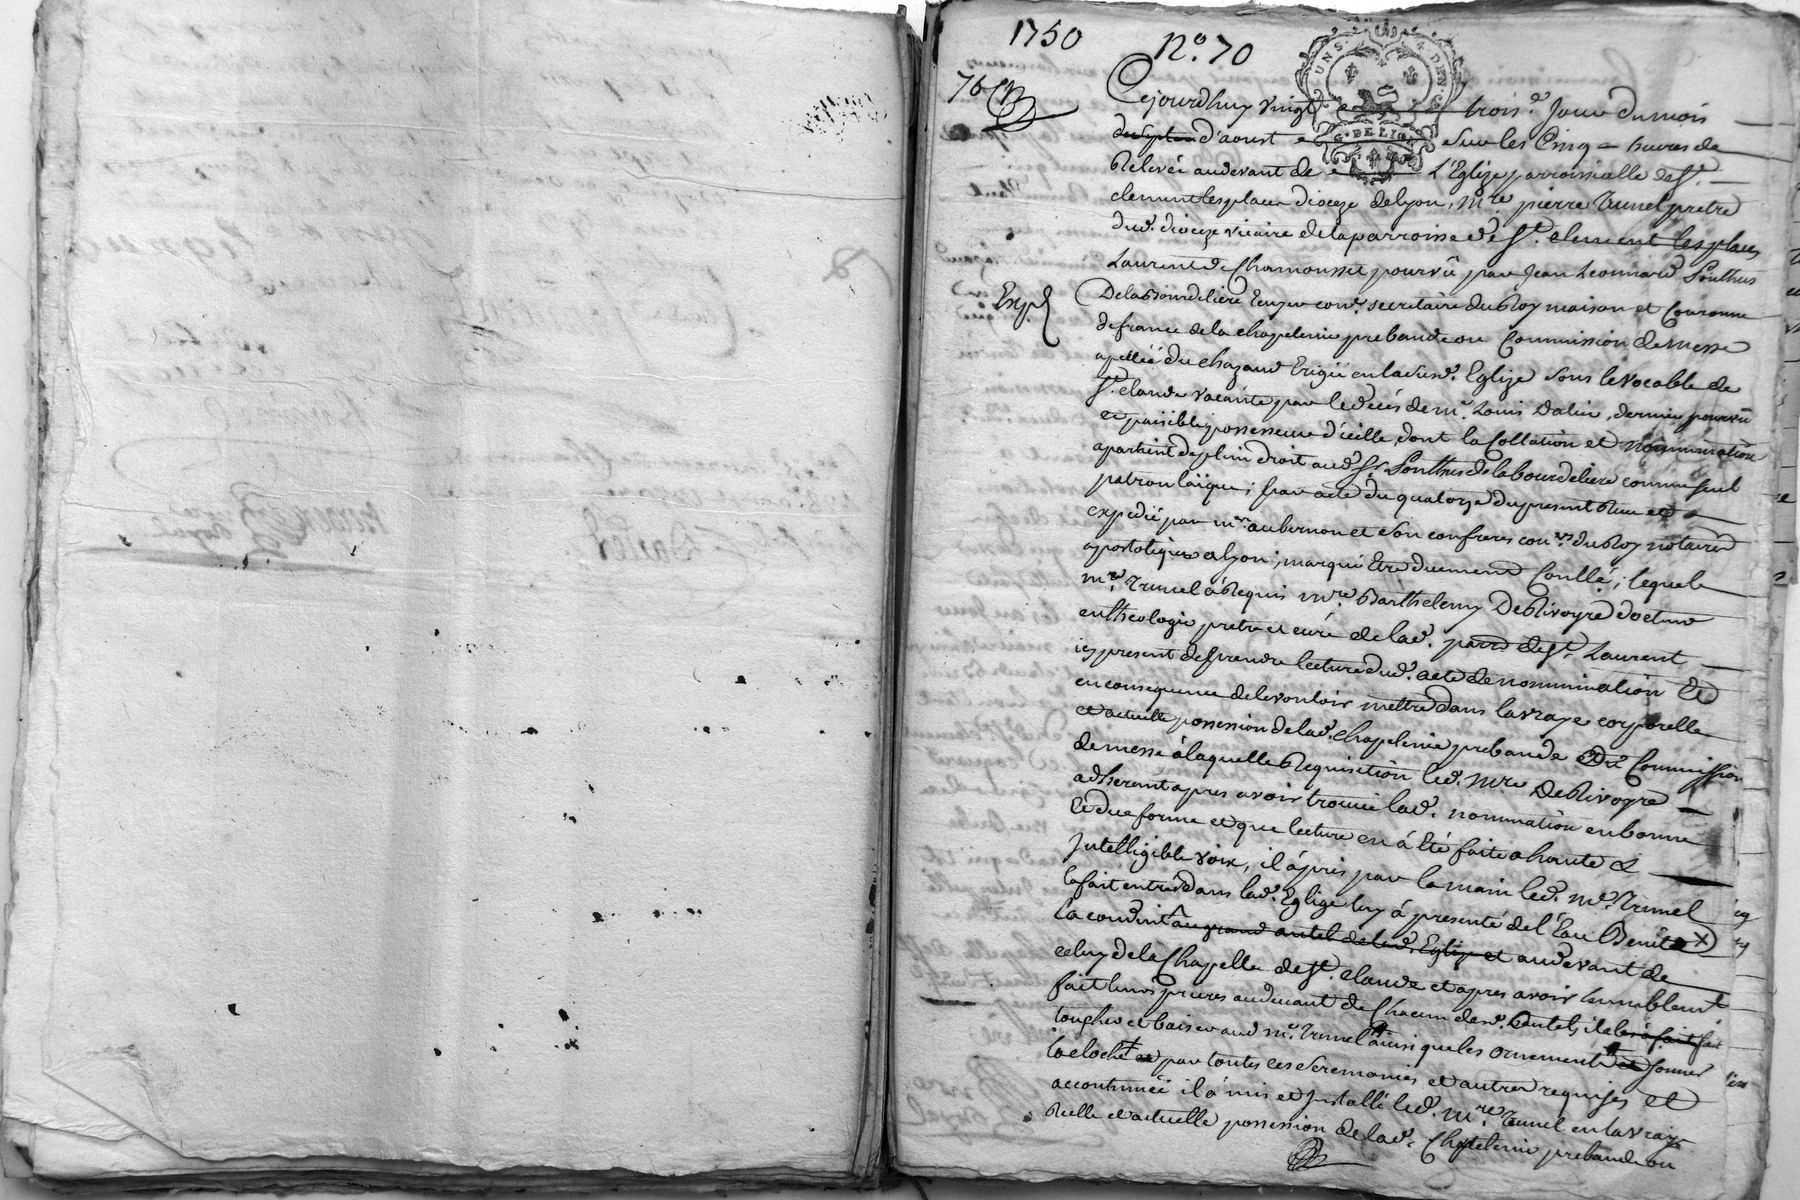 1750 N.o 70
76
UNS. 4. DEN
G. DE LION
Cejourdhuy vingt trois.e Jour du mois
d'aoust sur les Cinq heures de
Relevée audevant de L'Eglize parroissielle de St.
clement les places dioceze de lyon, mre pierre Trunel pretre
dud. dioceze vicaire de la parroisse de St. clement les places
Laurent de Chamousset pourvû par Jean Leonnard Southus
Exp.
De la Bourdeliere Ecuyer con.r secretaire du Roy maison et Couronne
de france de la chapelenie prebande ou Commission de messe
apellée du chazaud Erigée en la susd. Eglize sous le vocable de
St. claude vacante par le decés de mr. Louis Dalin, dernier pourvû
et paisible possesseur d'icelle, dont la Collation et nommination
apartient de plein droit aud. Sr. Southus de la bourdeliere comme seul
patron laïque; par acte du quatorze du present Reçu et
expedié par mre aubernon et son confrere con.rs du Roy notaires
apostoliques a lyon; marqué Etre duement Conllé; lequel
mre Trunel á Requis mre Barthelemy DeRivoyre docteur
en theologie pretre et curé de lad. parr. de St. Laurent
icy present de prendre lecture dud. acte de nommination Et
en consequence de le vouloir mettre dans la vraye corporelle
et actuelle possession de lad. chapelenie prebande Commission
de messe á laquelle Requisition led. mre DeRivoyre
adherant apres avoir trouvé lad. nommination en bonne
Et due forme et que lecture en á Eté faite a haute &
Intelligible voix, il á pris par la main led. mre. Trunel
la fait entrer dans lad. Eglize luy á presenté de l'Eau Benite X
la conduit au grand autel de lad. Eglize et audevant de
celuy de la Chapelle de St. claude et apres avoir humblement
fait leurs prieres audevant de Chacun desd. autels, il a fait
toucher et baiser aud. mre. Trunel ainsi que les ornements et sonner
la cloche et par toutes ces Seremonies et autres requises et
accoutumée il á mis et Installé led. mre Trunel en la vraye
Reelle et actuelle possession de lad. Chapelenie prebande ou